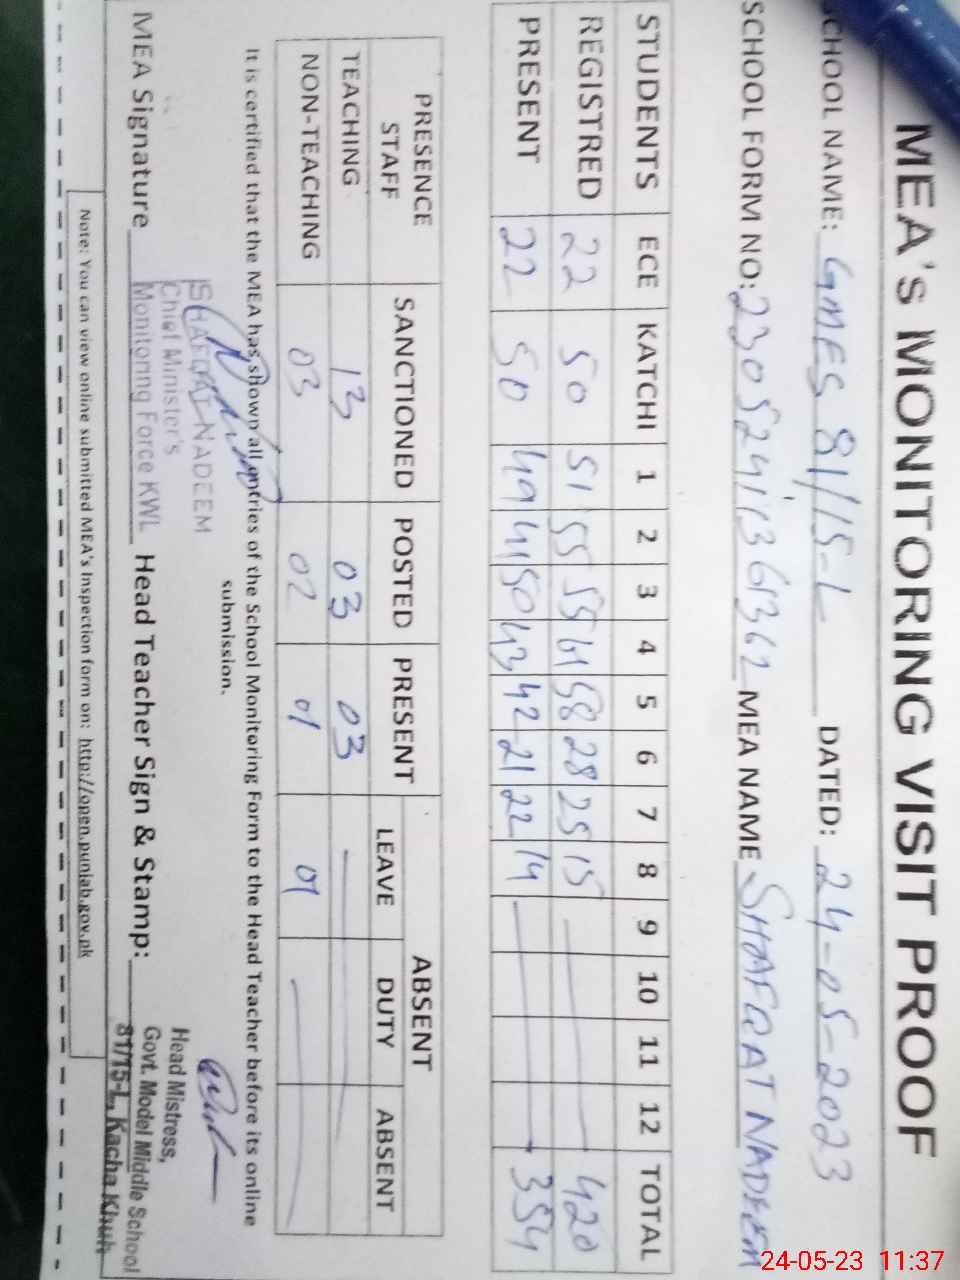 MEA's MONITORING VISIT PROOF
SCHOOL NAME: GMES 81/15-L DATED: 24-05-2023
SCHOOL FORM NO: MEA NAME SHAFQAT NADEEM
STUDENTS ECE KATCHI 1 2 3 4 5 6 7 8 9 10 11 12 TOTAL
REGISTRED 22 50 51 55 55 61 58 28 25 15 420
PRESENT 22 50 49 41 50 43 42 21 22 14 354
PRESENCE STAFF SANCTIONED POSTED PRESENT ABSENT
LEAVE DUTY ABSENT
TEACHING 13 03 03
NON-TEACHING 03 02 01 01
It is certified that the MEA has shown all entries of the School Monitoring Form to the Head Teacher before its online
submission.
SHAFQAT NADEEM
Chief Minister's
Monitoring Force KWL
MEA Signature Head Teacher Sign & Stamp:
Head Mistress,
Govt. Model Middle School
81/15-L, Kacha Khuh
Note: You can view online submitted MEA's Inspection form on: http://open.punjab.gov.pk
24-05-23 11:37